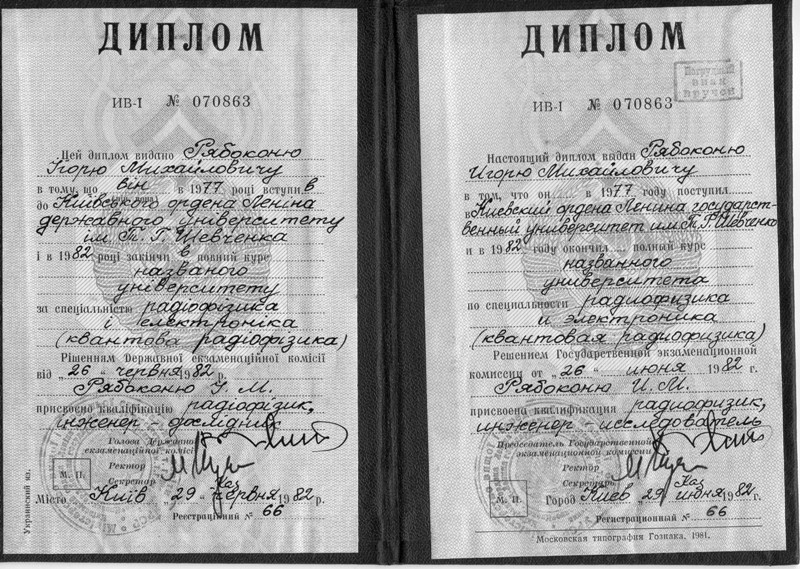 ДИПЛОМ
ИВ-I № 070863
Цей диплом видано Рябоконю
Ігорю Михайловичу
в тому, що він в 1977 році вступив
до Київського ордена Леніна
державного університету
ім. Т. Г. Шевченка
і в 1982 році закінчив повний курс
названого
університету
за спеціальністю радіофізика
і електроніка
(квантова радіофізика)
Рішенням Державної екзаменаційної комісії
від „26" червня 1982 р.
Рябоконю І. М.
присвоєна кваліфікацію радіофізик,
інженер-дослідник
Голова Державної
екзаменаційної комісії
Ректор
Секретар
М. П.
Місто Київ „29" червня 1982 р.
Реєстраційний № 66
Украинский яз.
ДИПЛОМ
Нагрудный
знак
вручен
ИВ-I № 070863
Настоящий диплом выдан Рябоконю
Игорю Михайловичу
в том, что он в 1977 году поступил
в Киевский ордена Ленина государст-
венный университет им. Т. Г. Шевченко
и в 1982 году окончил полный курс
названного
университета
по специальности радиофизика
и электроника
(квантовая радиофизика)
Решением Государственной экзаменационной
комиссии от „26" июня 1982 г.
Рябоконю И. М.
присвоена квалификация радиофизик,
инженер-исследователь
Председатель Государственной
экзаменационной комиссии
Ректор
Секретарь
М. П.
Город Киев „29" июня 1982 г.
Регистрационный № 66
Московская типография Гознака. 1981.